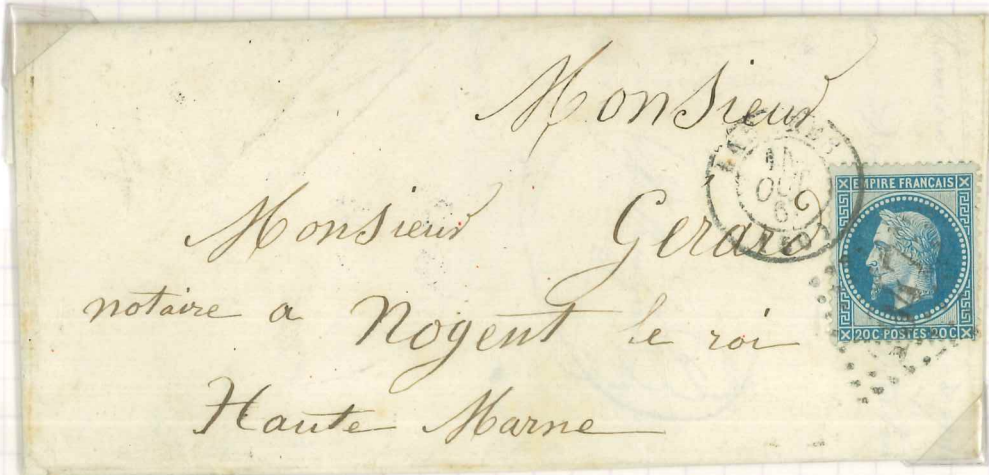 Monsieur
Monsieur Gerard
notaire a Nogent le roi
Haute Marne
OCT
EMPIRE FRANÇAIS
20C POSTES 20C